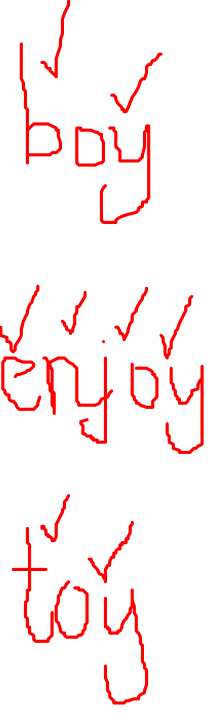 boy
enjoy
toy